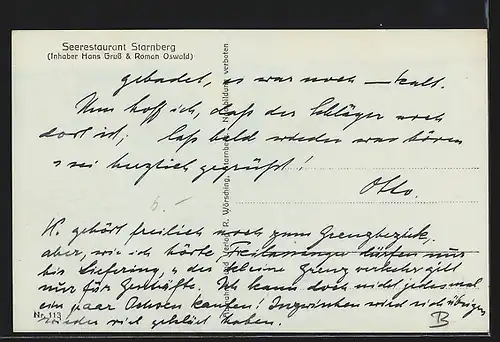 Seerestaurant Starnberg
(Inhaber Hans Gruß & Roman Oswald)
gebadet, es war noch — kalt.
Nun hoff ich, daß der Schläger noch
dort ist; laß bald wieder was hören
u sei herzlich gegrüßt!
Otto.
6.–
K. gehört freilich noch zum Grenzbezirk,
aber, wie ich hörte, dürfen nur
bis Liefering, u der kleine Grenzverkehr gilt
nur für Geschäfte. Ich kann doch nicht jedesmal
ein paar Ochsen kaufen! Inzwischen wird sich übrigens
wieder viel geklärt haben.
Nr. 113
B
Verlag R. Wörsching, Starnberg
Nachbildung verboten